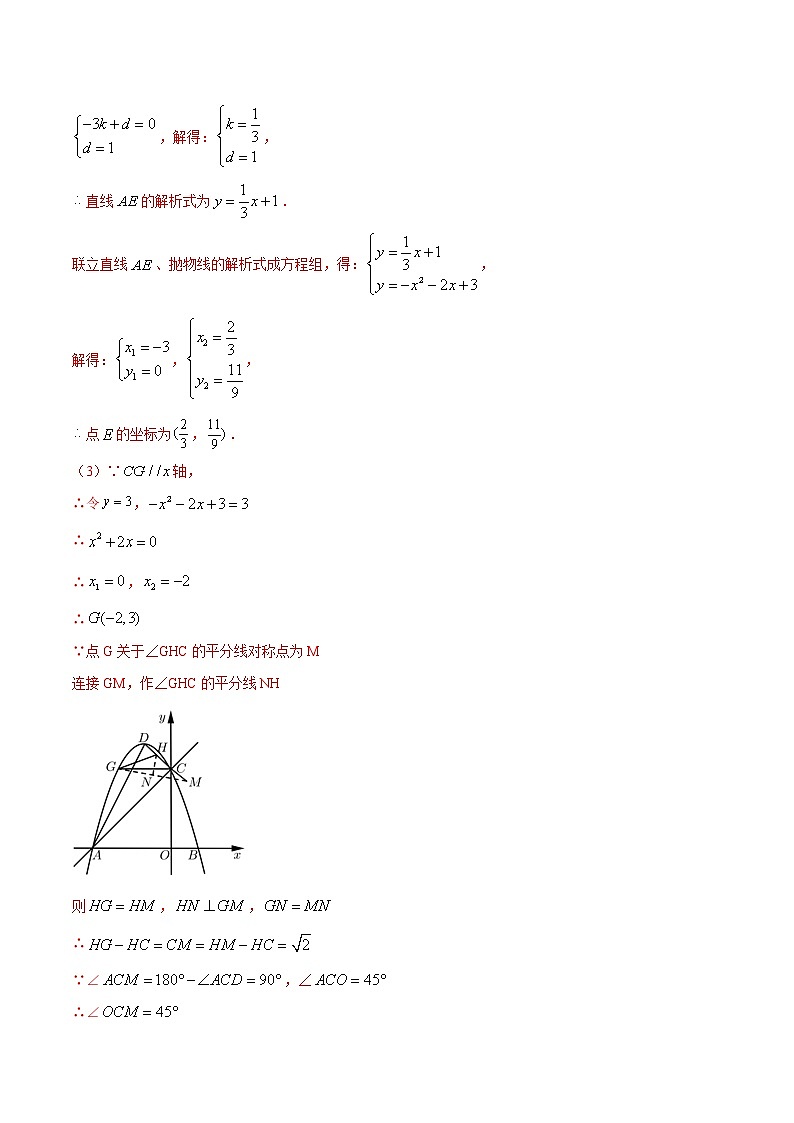 {−3k+d=0, d=1 ,解得:{k=1/3, d=1 ,
∴直线AE的解析式为y=1/3x+1.
联立直线AE、抛物线的解析式成方程组,得:{y=1/3x+1, y=−x²−2x+3 ,
解得:{x₁=−3, y₁=0 ,{x₂=2/3, y₂=11/9 ,
∴点E的坐标为(2/3,11/9).
(3)∵CG//x轴,
∴令y=3,−x²−2x+3=3
∴x²+2x=0
∴x₁=0,x₂=−2
∴G(−2,3)
∵点G关于∠GHC的平分线对称点为M
连接GM,作∠GHC的平分线NH
y
D
H
G
C
N
M
A
O
B
x
则HG=HM,HN⊥GM,GN=MN
∴HG−HC=CM=HM−HC=√2
∵∠ACM=180°−∠ACD=90°,∠ACO=45°
∴∠OCM=45°